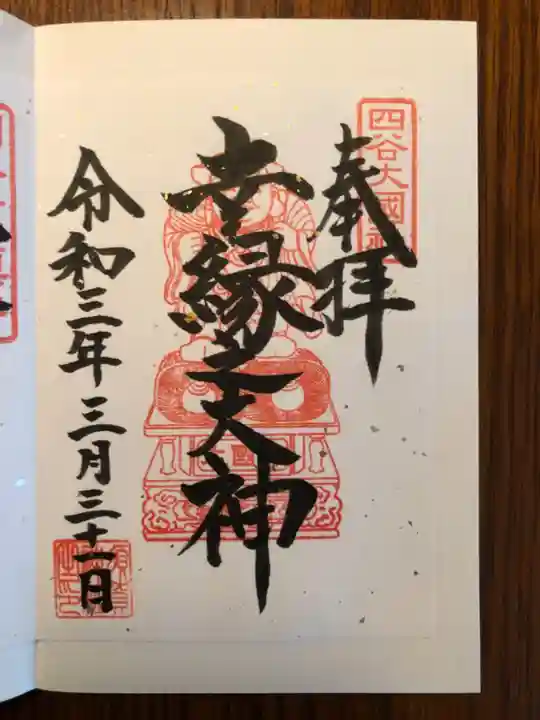 四谷大國
奉拝
幸縁之大神
令和三年三月三十一日